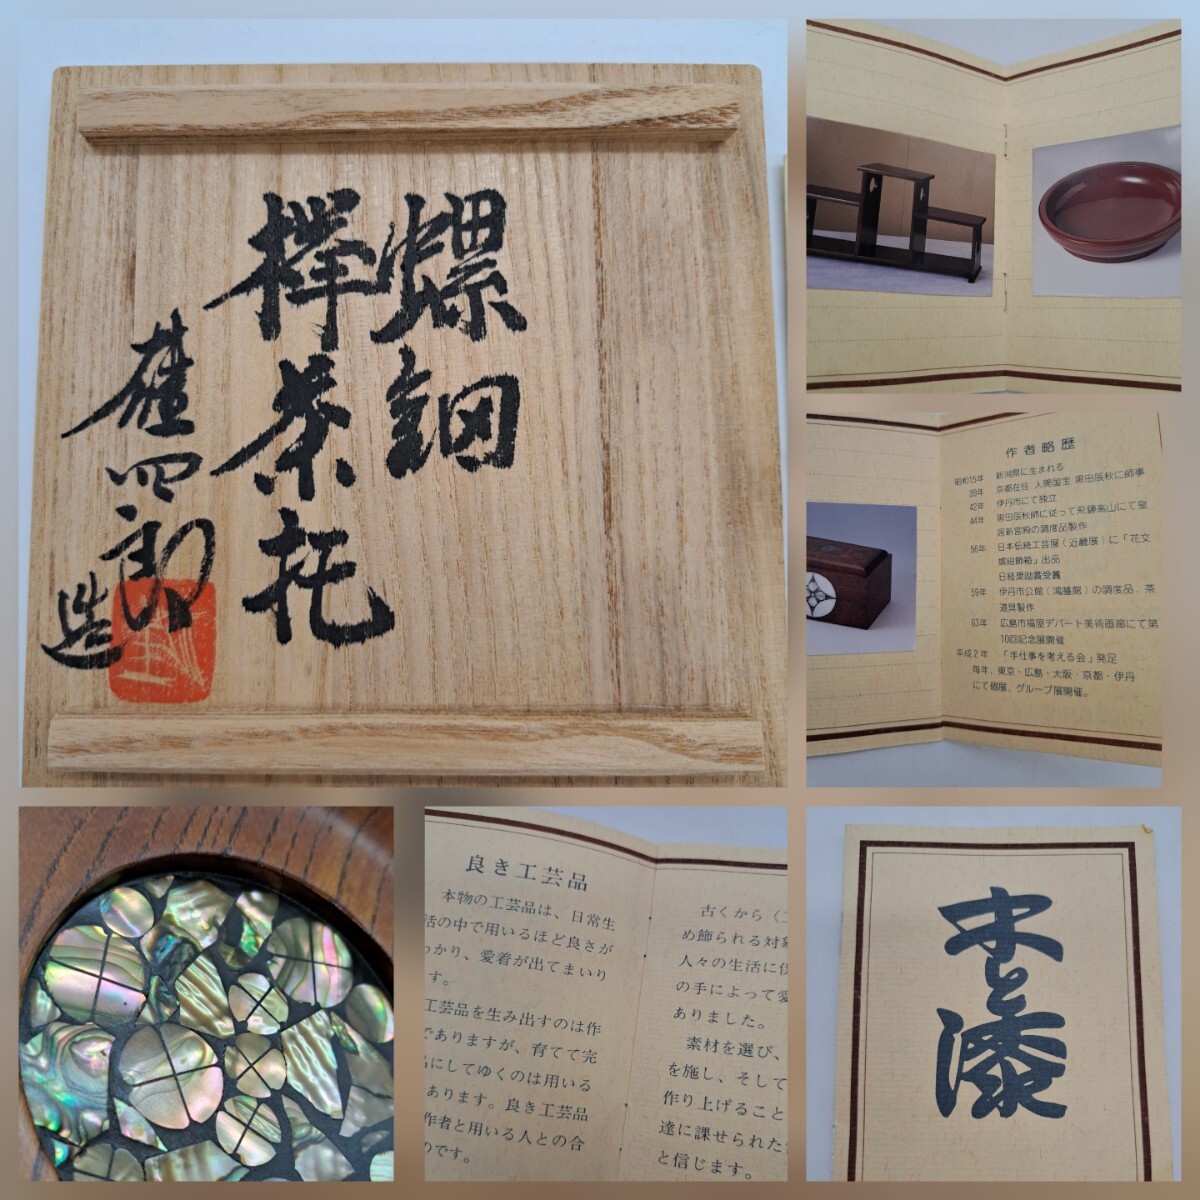 螺鈿
欅茶托
雄四郎
造
作者略歴
昭和15年 新潟県に生まれる
39年 京都在住 人間国宝 黒田辰秋に師事
42年 伊丹市にて独立
44年 黒田辰秋師に従って飛騨高山にて皇
居新宮殿の調度品製作
56年 日本伝統工芸展(近畿展)に「花文
螺鈿飾箱」出品
日経奨励賞受賞
59年 伊丹市公館(鴻臚館)の調度品、茶
道具製作
63年 広島市福屋デパート美術画廊にて第
10回記念展開催
平成2年 「手仕事を考える会」発足
毎年、東京・広島・大阪・京都・伊丹
にて個展、グループ展開催。
良き工芸品
本物の工芸品は、日常生
活の中で用いるほど良さが
わかり、愛着が出てまいり
す。
工芸品を生み出すのは作
でありますが、育てて完
にしてゆくのは用いる
あります。良き工芸品
作者と用いる人との合
のです。
古くから
め飾られる対象
人々の生活に
の手によって愛
ありました。
素材を選び、
を施し、そして
作り上げること
達に課せられた
と信じます。
木と漆